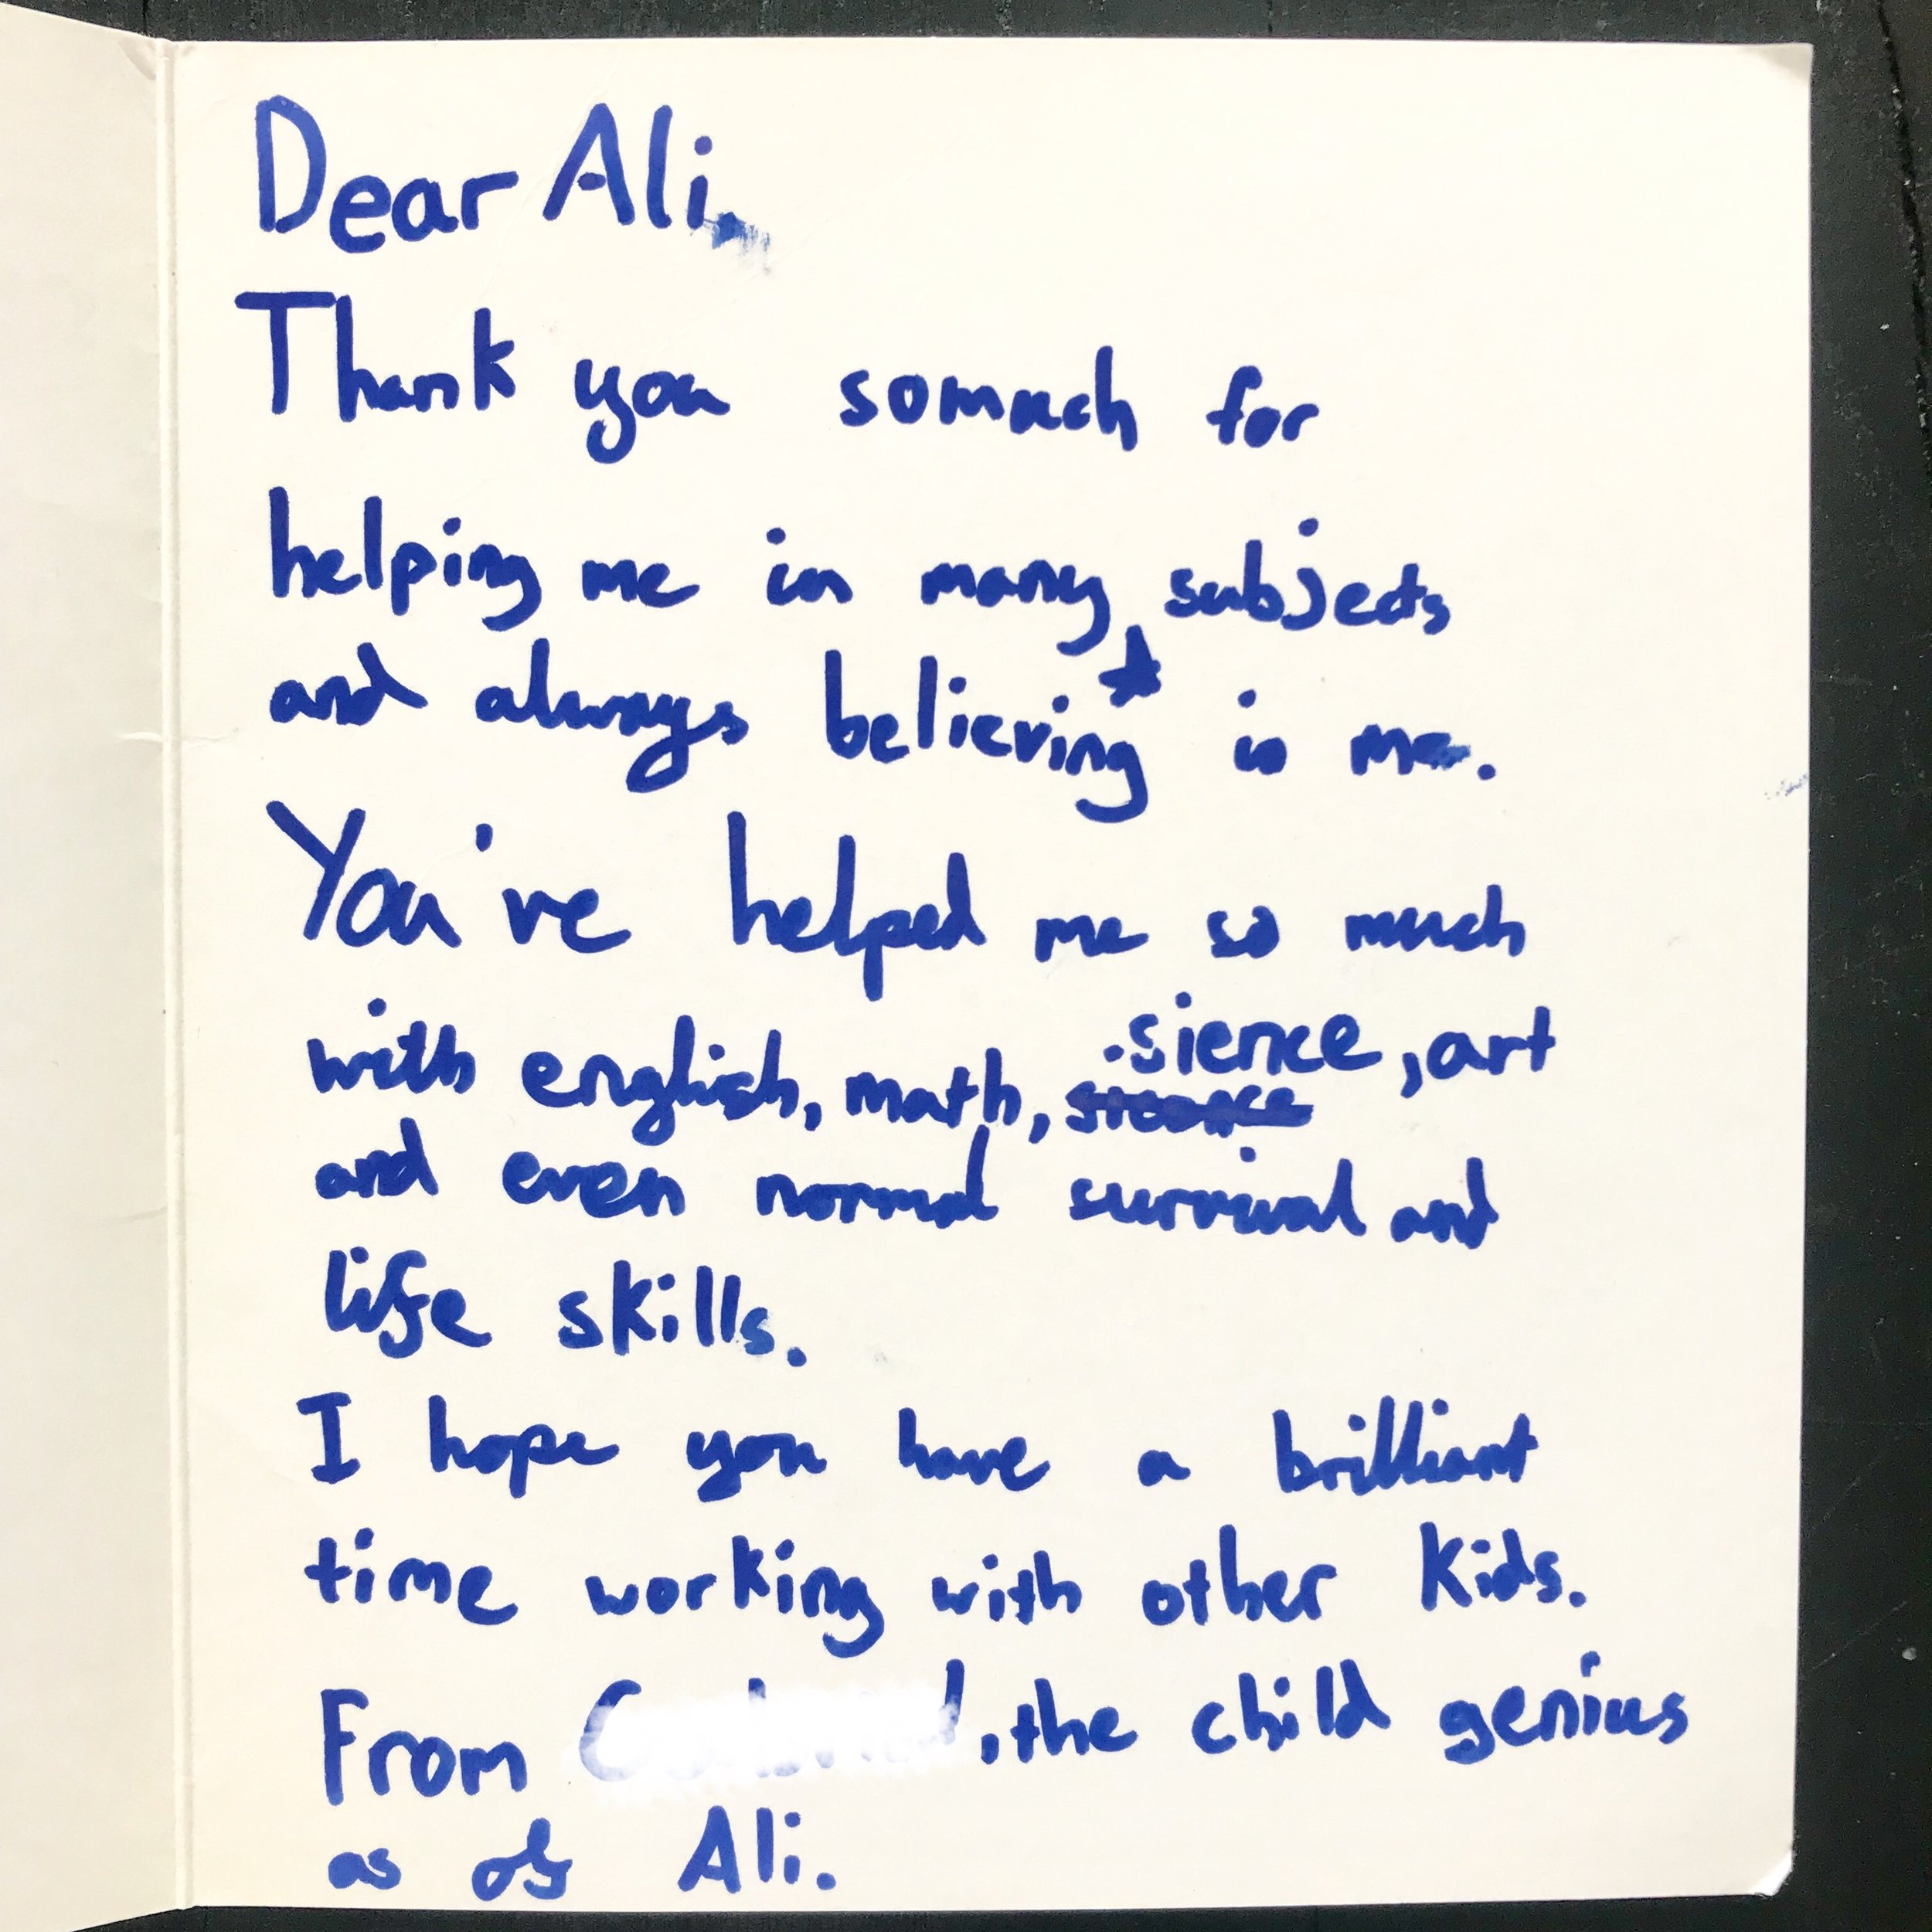 Dear Ali,
Thank you somuch for
helping me in many subjects
and always believing in me.
You've helped me so much
with english, math, sience, art
and even normal survival and
life skills.
I hope you have a brilliant
time working with other kids.
From , the child genius
as of Ali.